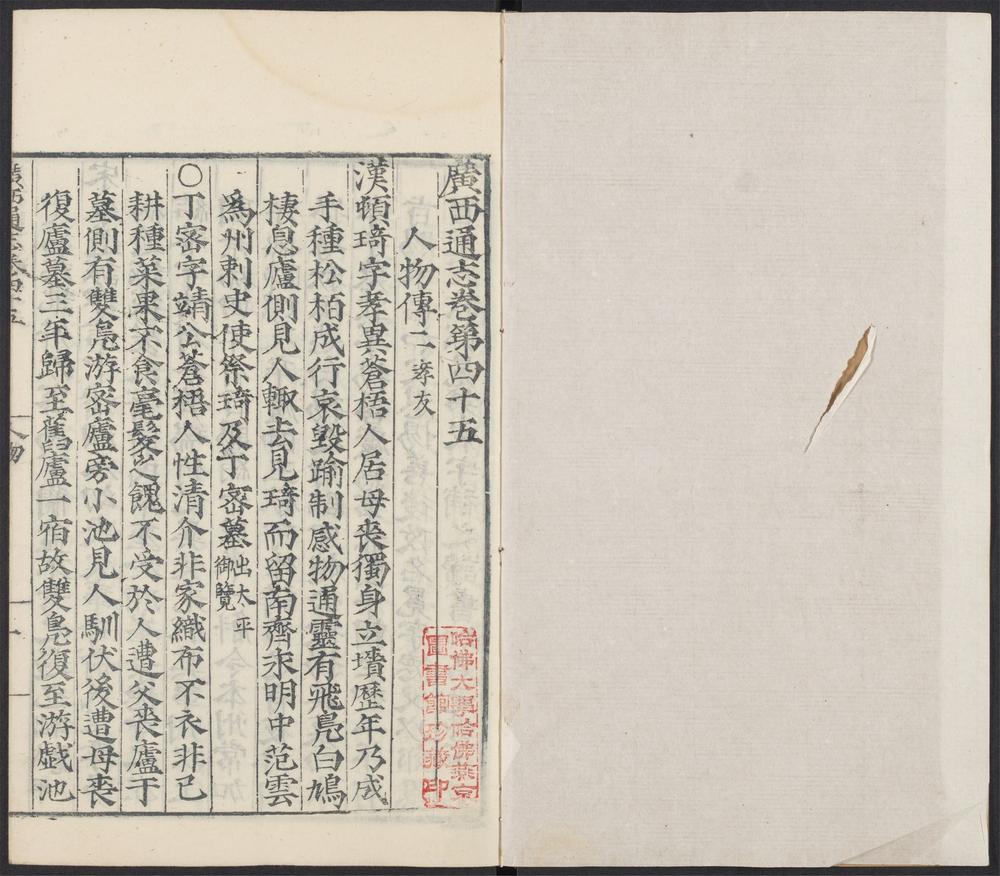 廣西通志卷第四十五
人物傳二 孝友
漢頓琦字孝異蒼梧人居母喪獨身立墳歷年乃成
手種松柏成行哀毀踰制感物通靈有飛鳧白鳩
棲息廬側見人輙去見琦而留南齊永明中范雲
爲州刺史使祭琦及丁密墓 出太平
御覽
○丁密字靖公蒼梧人性清介非家織布不衣非己
耕種菜果不食毫髮之餽不受於人遭父喪廬于
墓側有雙鳧游密廬旁小池見人馴伏後遭母喪
復廬墓三年歸至舊廬一宿故雙鳧復至游戯池
廣西通志卷四十五
人物
一
哈佛大學哈佛燕京
圖書館珍藏印